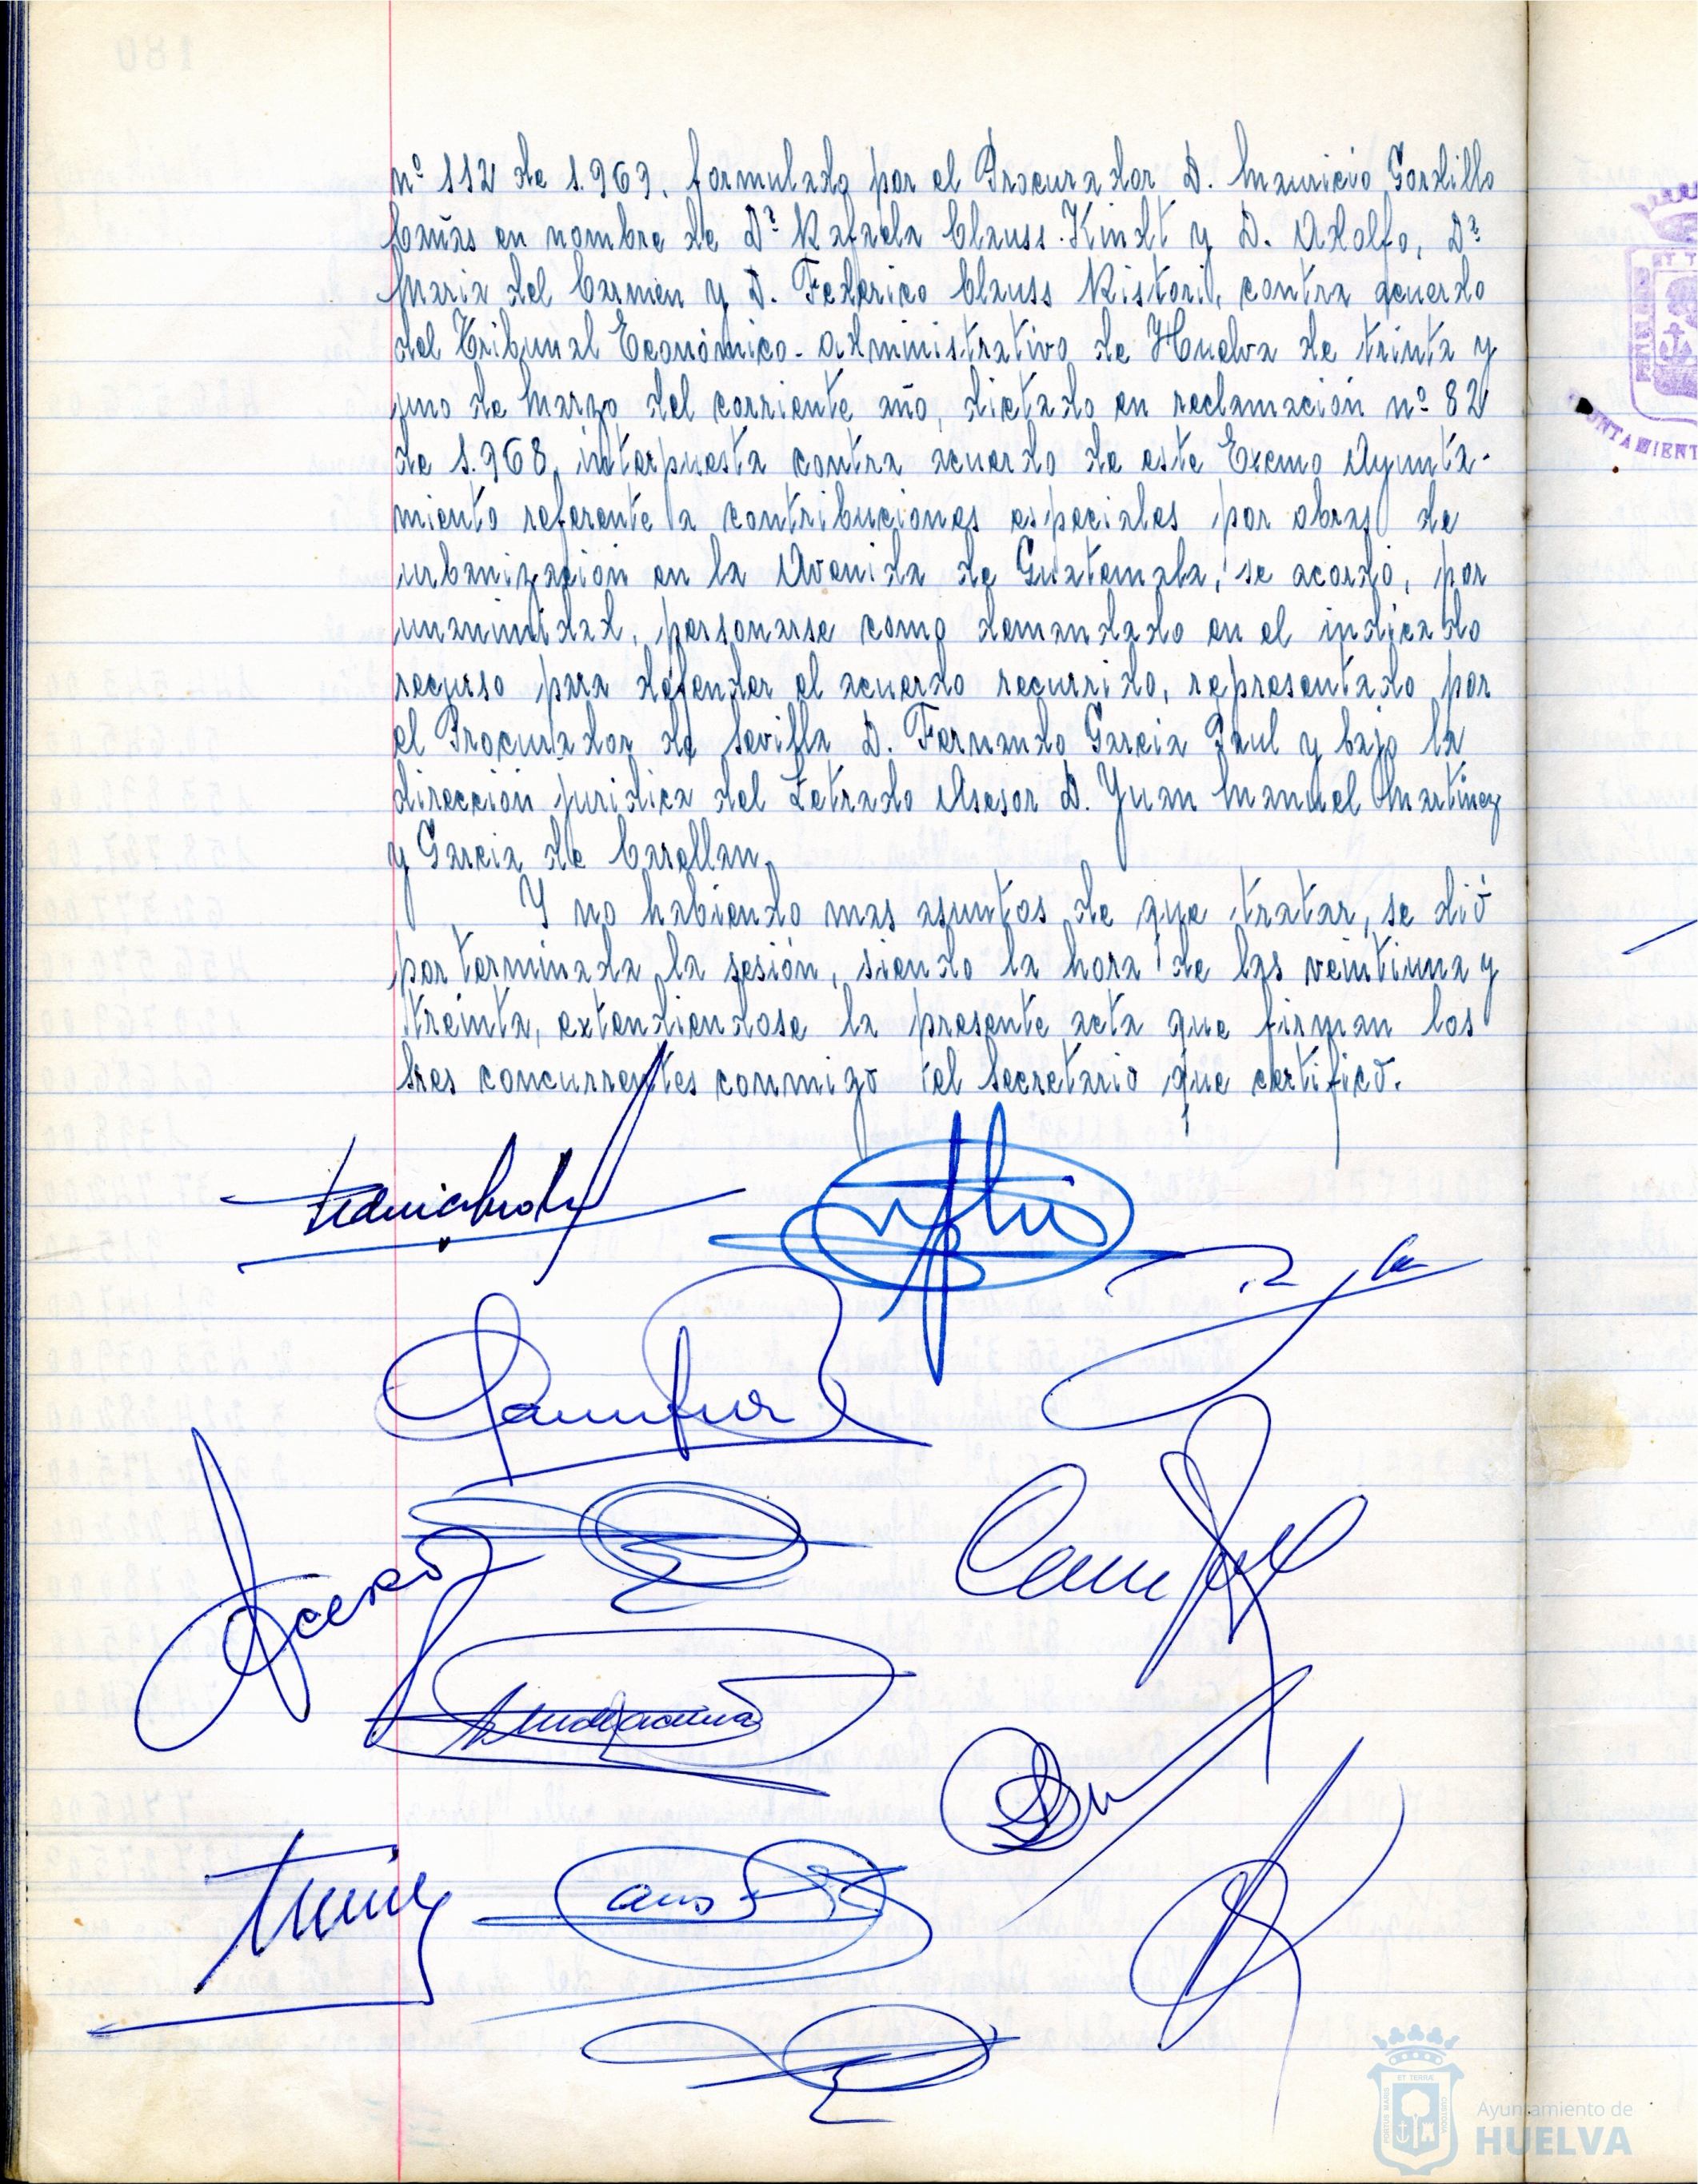 nº 112 de 1.969, formulado por el Procurador D. Mauricio Gordillo
Cañas en nombre de Dª Rafaela Clauss Kindt y D. Adolfo, Dª
Maria del Carmen y D. Federico Clauss Ristori, contra acuerdo
del Tribunal Económico-Administrativo de Huelva de treinta y
uno de Marzo del corriente año, dictado en reclamación nº 82
de 1.968, interpuesta contra acuerdo de este Excmo Ayunta-
miento referente a contribuciones especiales por obras de
urbanización en la Avenida de Guatemala, se acordó, por
unanimidad, personarse como demandado en el indicado
recurso para defender el acuerdo recurrido, representado por
el Procurador de Sevilla D. Fernando Garcia Paul y bajo la
dirección juridica del Letrado Asesor D. Juan Manuel Martinez
y Garcia de
Y no habiendo mas asuntos de que tratar, se dió
por terminada la sesión, siendo la hora de las veintiuna y
treinta, extendiendose la presente acta que firman los
Sres concurrentes conmigo el Secretario que certifico.
Acevedo
Ayuntamiento de
HUELVA